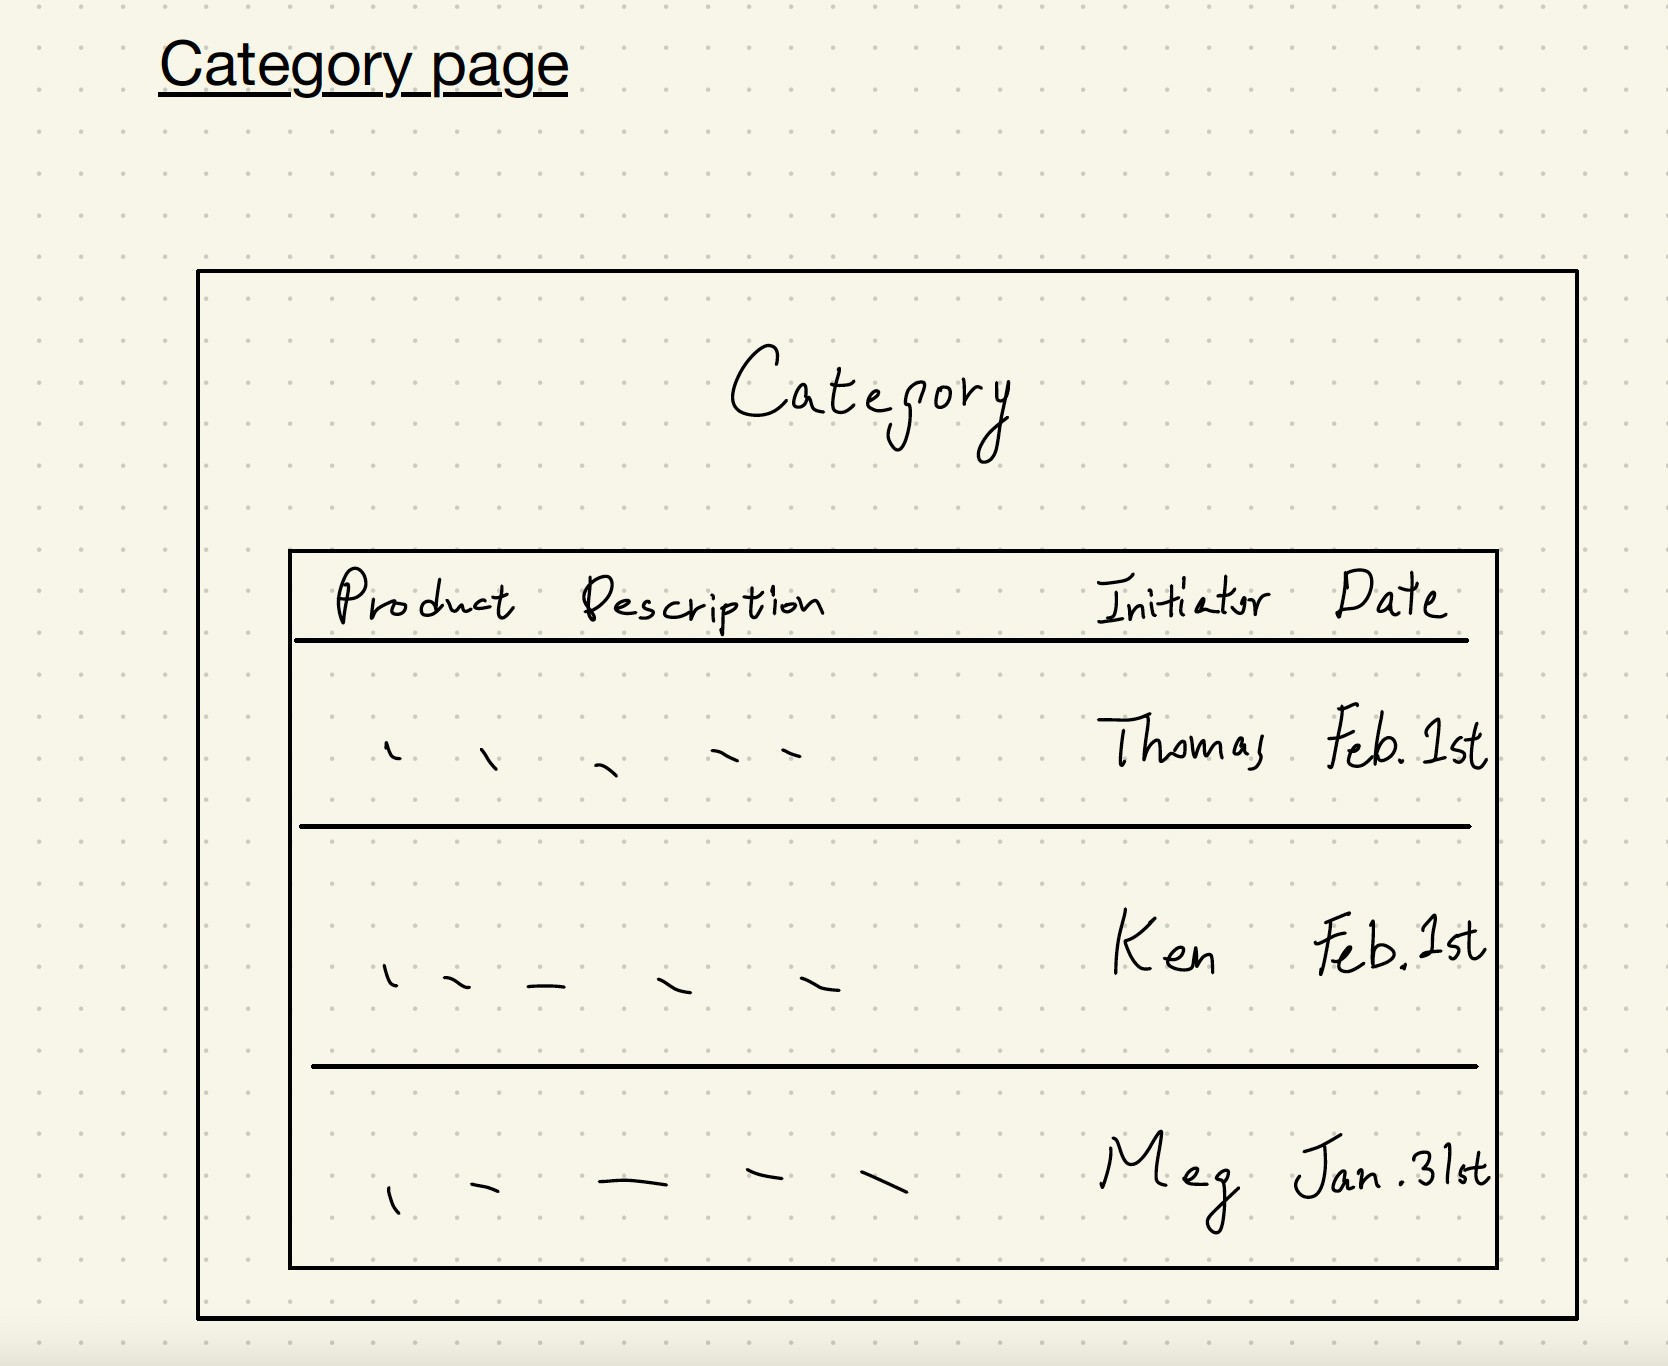 Category page
Category
Product Description Initiator Date
Thomas Feb. 1st
Ken Feb. 1st
Meg Jan. 31st